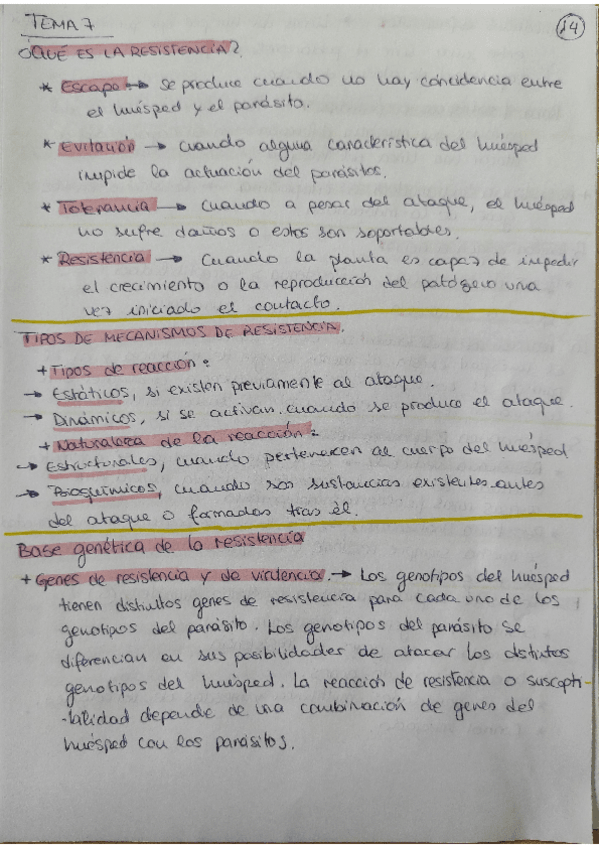 TEMA 7
14
¿QUÉ ES LA RESISTENCIA?
* Escapo → se produce cuando no hay concidencia entre
el huésped y el parásito.
* Evitación → cuando alguna característica del huésped
impide la actuación del parásitos.
* Tolerancia → cuando a pesar del ataque, el huésped
no sufre daños o estos son soportables.
* Resistencia → Cuando la planta es capaz de impedir
el crecimiento o la reproducción del patógeno una
vez iniciado el contacto.
TIPOS DE MECANISMOS DE RESISTENCIA.
+ Tipos de reacción:
→ Estáticos, si existen previamente al ataque.
→ Dinámicos, si se activan cuando se produce el ataque.
+ Naturaleza de la reacción:
→ Estructurales, cuando pertenecen al cuerpo del huésped
→ Bioquímicos, cuando son sustancias existentes antes
del ataque o formadas tras él.
Base genética de la resistencia
+ Genes de resistencia y de virulencia. → Los genotipos del huésped
tienen distintos genes de resistencia para cada uno de los
genotipos del parásito. Los genotipos del parásito se
diferencian en sus posibilidades de atacar los distintos
genotipos del huésped. La reacción de resistencia o suscepti-
-bilidad depende de una combinación de genes del
huésped con los parásitos.